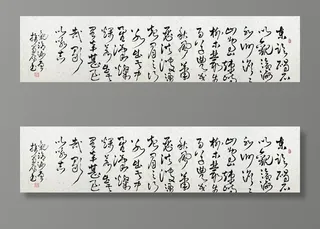 东临碣石
以观沧海
水何澹澹
山岛竦峙
树木丛生
百草丰茂
秋风萧
瑟洪波涌
起日月之
行若出其中
星汉灿
烂若出其
里幸甚至
哉歌
以咏志
东临碣石
以观沧海
水何澹澹
山岛竦峙
树木丛生
百草丰茂
秋风萧
瑟洪波涌
起日月之
行若出其中
星汉灿
烂若出其
里幸甚至
哉歌
以咏志